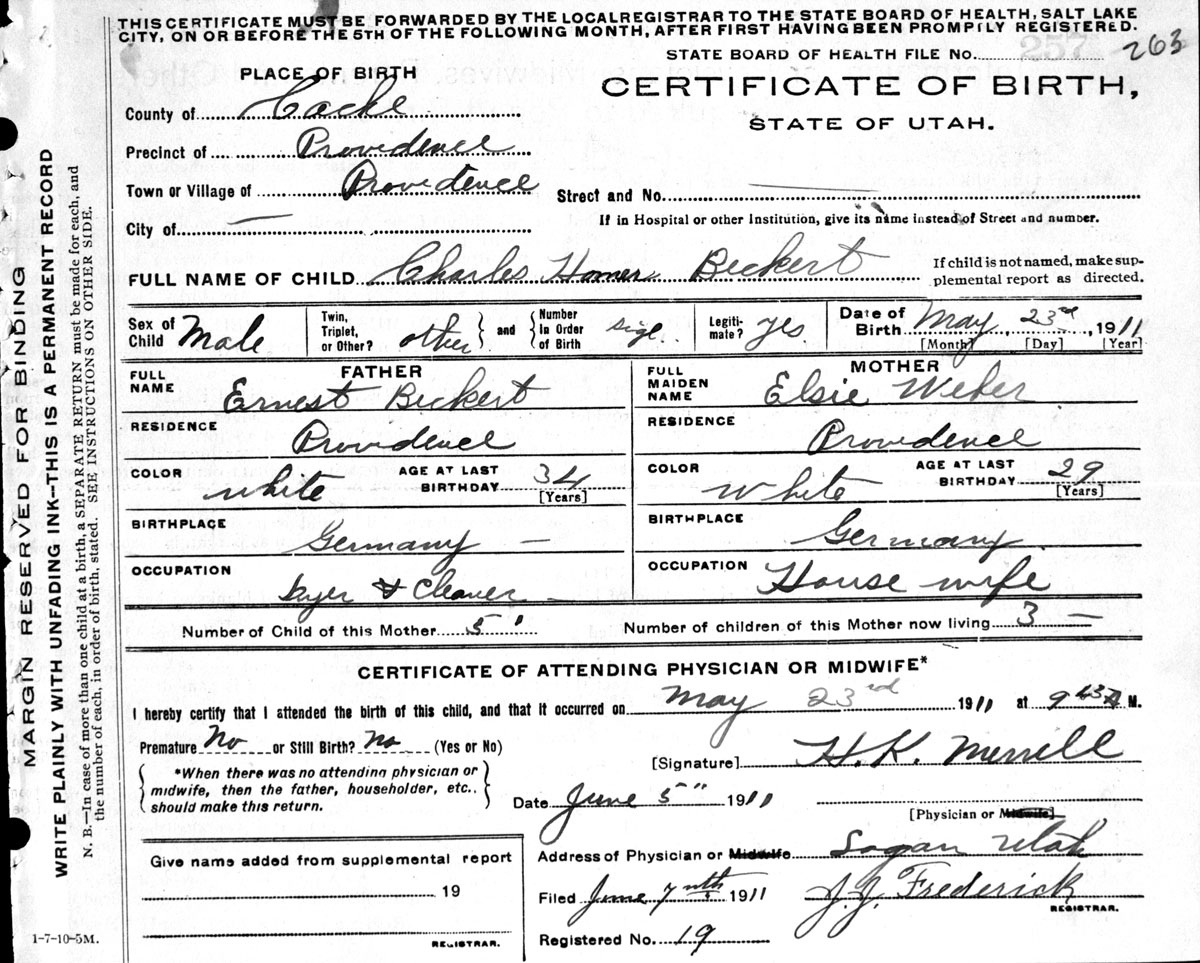 THIS CERTIFICATE MUST BE FORWARDED BY THE LOCAL REGISTRAR TO THE STATE BOARD OF HEALTH, SALT LAKE
CITY, ON OR BEFORE THE 5TH OF THE FOLLOWING MONTH, AFTER FIRST HAVING BEEN PROMPILY REGISTERED.
STATE BOARD OF HEALTH FILE No. 257 263
PLACE OF BIRTH
CERTIFICATE OF BIRTH,
STATE OF UTAH.
County of Cache
Precinct of Providence
Town or Village of Providence
Street and No.
City of
If in Hospital or other Institution, give its name instead of Street and number.
FULL NAME OF CHILD Charles Homer Beckert
If child is not named, make sup-
plemental report as directed.
Sex of Child Male
Twin, Triplet, or Other? other and Number In Order of Birth
Legiti-mate? yes
Date of Birth May 23rd, 1911
[Month] [Day] [Year]
FATHER
FULL NAME Ernest Beckert
RESIDENCE Providence
COLOR white AGE AT LAST BIRTHDAY 34 [Years]
BIRTHPLACE Germany
OCCUPATION Dyer & Cleaner
MOTHER
FULL MAIDEN NAME Elsie Weber
RESIDENCE Providence
COLOR White AGE AT LAST BIRTHDAY 29 [Years]
BIRTHPLACE Germany
OCCUPATION House wife
Number of Child of this Mother 5
Number of children of this Mother now living 3
CERTIFICATE OF ATTENDING PHYSICIAN OR MIDWIFE*
I hereby certify that I attended the birth of this child, and that it occurred on May 23rd 1911 at 9 43 A M.
Premature No or Still Birth? No (Yes or No)
[Signature] H. K. Merrill
*When there was no attending physician or
midwife, then the father, householder, etc.,
should make this return.
Date June 5" 1911
[Physician or Midwife]
Give name added from supplemental report
19
REGISTRAR.
Address of Physician or Midwife Logan Utah
Filed June 7 1911 J. J. Frederick
REGISTRAR.
Registered No. 19
1-7-10-5M.
MARGIN RESERVED FOR BINDING
WRITE PLAINLY WITH UNFADING INK--THIS IS A PERMANENT RECORD
N. B.—In case of more than one child at a birth, a SEPARATE RETURN must be made for each, and
the number of each, in order of birth, stated. SEE INSTRUCTIONS ON OTHER SIDE.